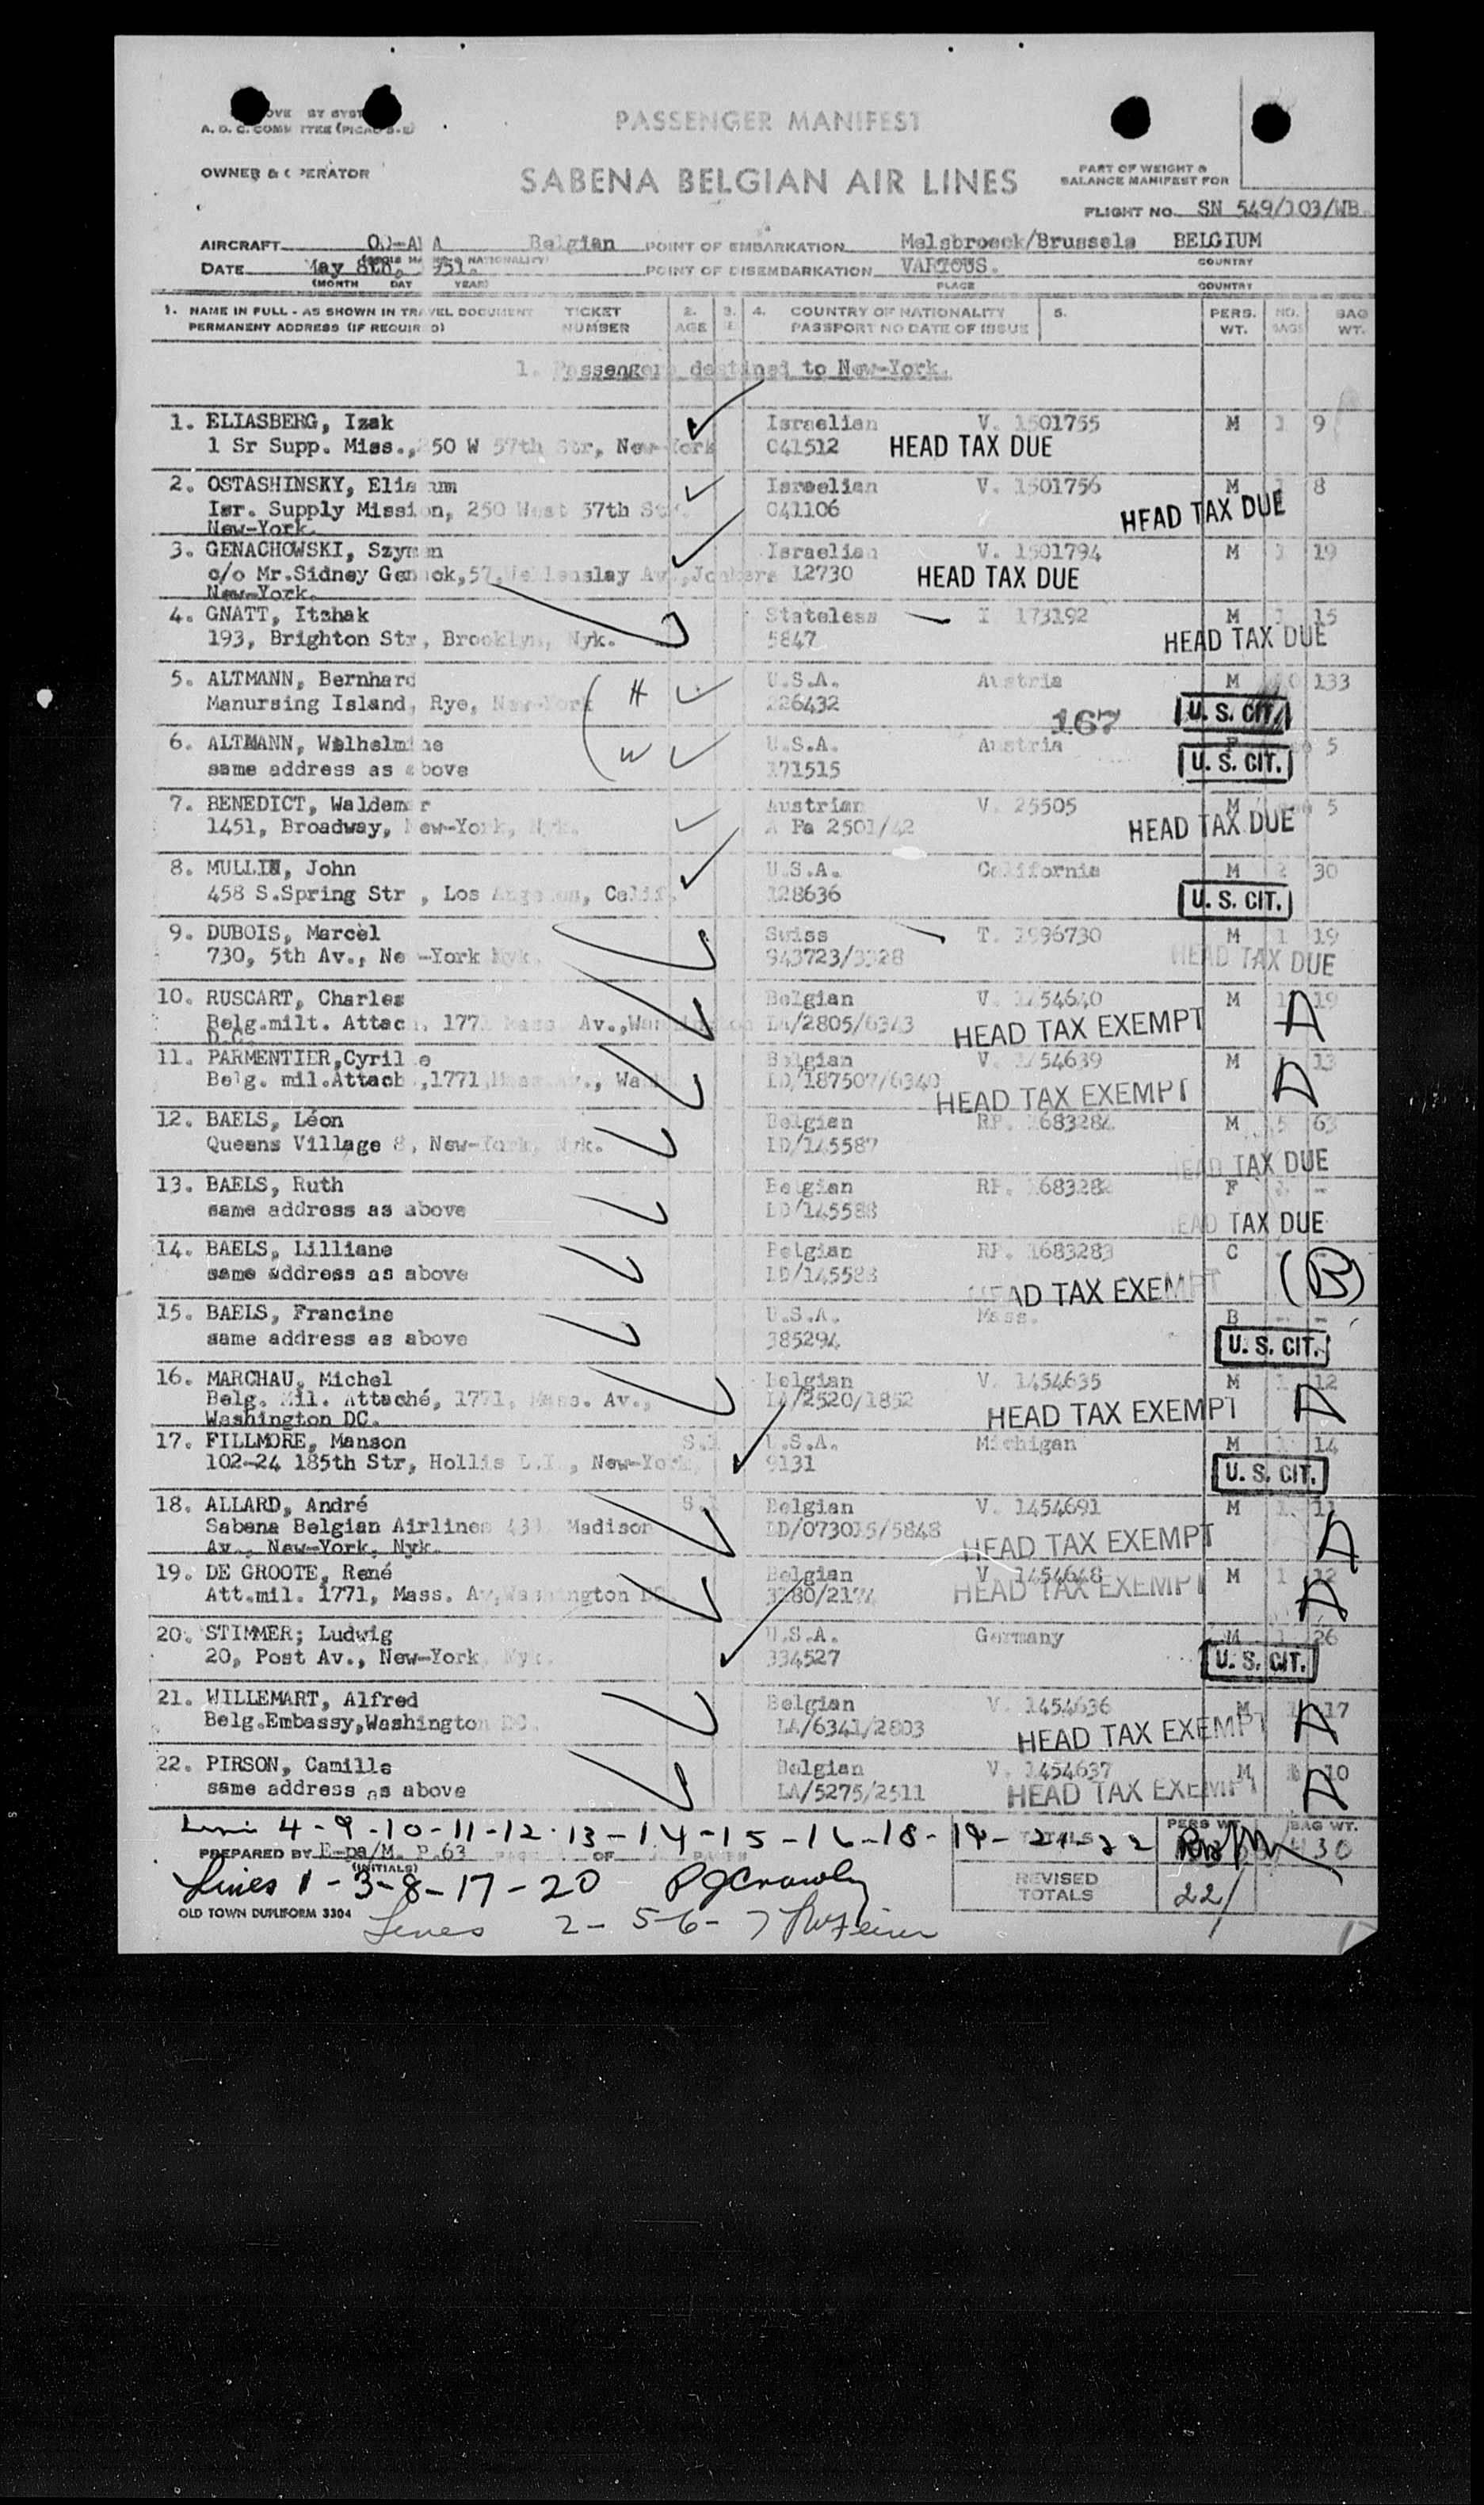 PASSENGER MANIFEST
OWNER & OPERATOR
SABENA BELGIAN AIR LINES
PART OF WEIGHT &
BALANCE MANIFEST FOR
FLIGHT NO. SN 549/103/WB
AIRCRAFT Belgian POINT OF EMBARKATION Melsbroeck/Brussels BELGIUM
DATE May 8th, 951. POINT OF DISEMBARKATION VARIOUS.
(MONTH DAY YEAR) PLACE COUNTRY
1. NAME IN FULL - AS SHOWN IN TRAVEL DOCUMENT TICKET 2. 3. 4. COUNTRY OF NATIONALITY 5. PERS. NO. BAG
PERMANENT ADDRESS (IF REQUIRED) NUMBER AGE PASSPORT NO DATE OF ISSUE WT. BAGS WT.
1. Passengers destined to New-York.
1. ELIASBERG, Izak Israelian V. 1501755 M 1 9
1 Sr Supp. Miss., 250 W 57th Str, New-York C41512 HEAD TAX DUE
2. OSTASHINSKY, Elia um Israelian V. 1501756 M 8
Isr. Supply Mission, 250 West 57th Str. C41106 HEAD TAX DUE
New-York.
3. GENACHOWSKI, Szym n Israelian V. 1501794 M 1 19
c/o Mr.Sidney Genack,57, Av.,Jonkers 12730 HEAD TAX DUE
New-York.
4. GNATT, Itzhak Stateless I 173192 M 1 15
193, Brighton Str, Brooklyn, Nyk. 5847 HEAD TAX DUE
5. ALTMANN, Bernhard H U.S.A. Austria M 133
Manursing Island, Rye, New-York 226432 167 U. S. CIT.
6. ALTMANN, Wilhelmine W U.S.A. Austria F 5
same address as above 171515 U. S. CIT.
7. BENEDICT, Waldemar Austrian V. 25505 M 5
1451, Broadway, New-York, Nyk. A Pa 2501/42 HEAD TAX DUE
8. MULLIN, John U.S.A. California M 2 30
458 S.Spring Str , Los Angeles, Calif. 128636 U. S. CIT.
9. DUBOIS, Marcel Swiss T. 1996730 M 1 19
730, 5th Av., Ne -York Nyk. 943723/3328 HEAD TAX DUE
10. RUSCART, Charles Belgian V. 1454640 M 1 19
Belg.milt. Attach. 1771 Mass. Av.,Washington LA/2805/6343 HEAD TAX EXEMPT A
D.C.
11. PARMENTIER,Cyrille Belgian V. 1454639 M 13
Belg. mil.Attach.,1771,Mass.Av., Wash. LD/187507/6340 HEAD TAX EXEMPT A
12. BAELS, Léon Belgian RP. 1683284 M 5 63
Queens Village 8, New-York, Nyk. LD/145587 HEAD TAX DUE
13. BAELS, Ruth Belgian RP. 1683282 F -
same address as above LD/145588 HEAD TAX DUE
14. BAELS, Lilliane Belgian RP. 1683283 C
same address as above LD/145588 HEAD TAX EXEMPT (B)
15. BAELS, Francine U.S.A. Mass. B - -
same address as above 385294 U. S. CIT.
16. MARCHAU, Michel Belgian V. 1454635 M 1 12
Belg. Mil. Attaché, 1771, Mass. Av., LA/2520/1852 HEAD TAX EXEMPT A
Washington DC.
17. FILLMORE, Manson U.S.A. Michigan M 14
102-24 185th Str, Hollis L.I., New-York, 9131 U. S. CIT.
18. ALLARD, André Belgian V. 1454691 M 1 11
Sabena Belgian Airlines 431 Madison LD/073015/5848 HEAD TAX EXEMPT A
Av., New-York, Nyk.
19. DE GROOTE, René Belgian V. 1454648 M 1 12
Att.mil. 1771, Mass. Av,Washington DC 3280/2174 HEAD TAX EXEMPT A
20. STIMMER; Ludwig U.S.A. Germany M 1 26
20, Post Av., New-York, Nyk. 334527 U. S. CIT.
21. WILLEMART, Alfred Belgian V. 1454636 M 17
Belg.Embassy,Washington DC. LA/6341/2803 HEAD TAX EXEMPT A
22. PIRSON, Camille Belgian V. 1454637 M 10
same address as above LA/5275/2511 HEAD TAX EXEMPT A
4-9-10-11-12-13-14-15-16-18-19-21-22 TOTALS PERS WT. BAG WT.
PREPARED BY E-pa/M. P.63 OF 430
(INITIALS)
Lines 1-3-8-17-20 PJCrowley REVISED TOTALS 22/
OLD TOWN DUPLIFORM 3304
Lines 2-5-6-7